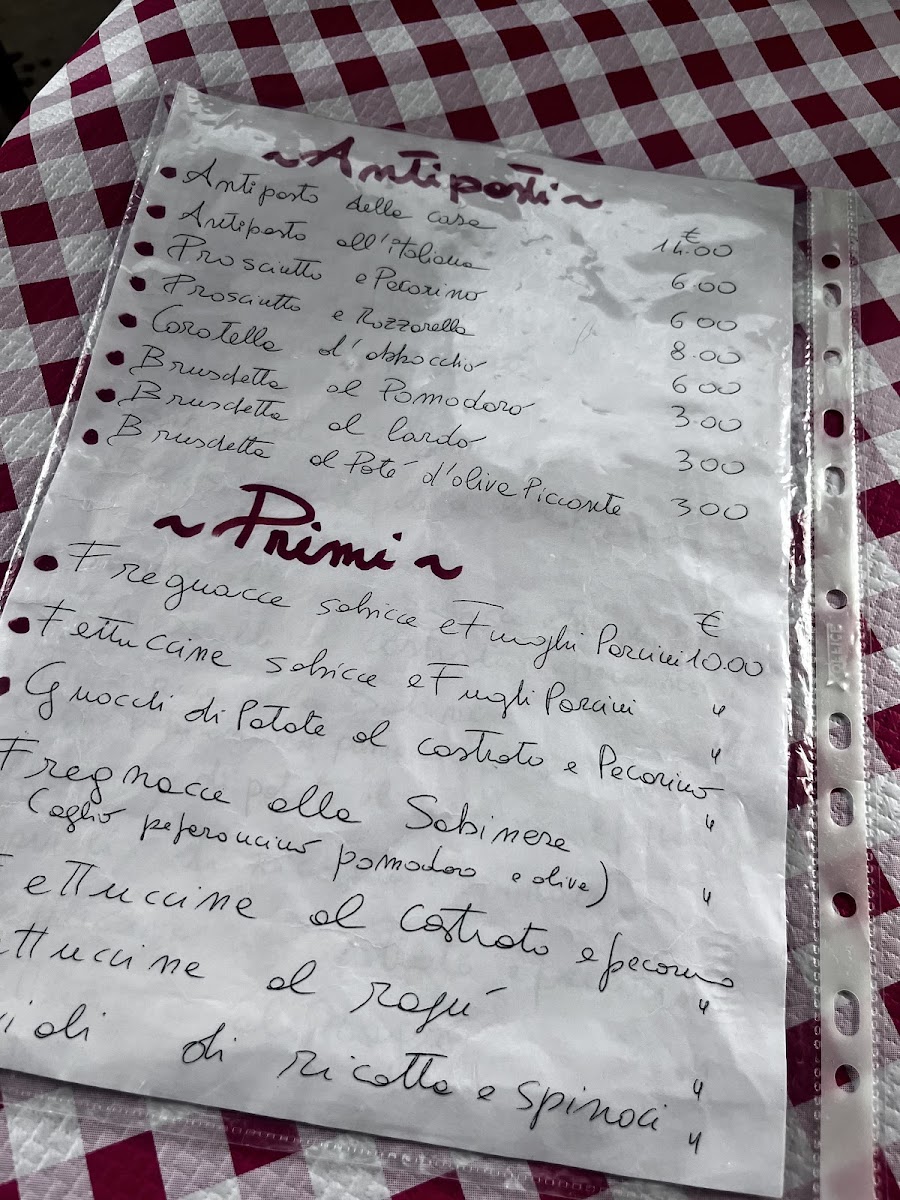 ~Antipasti~
• Antipasto della casa € 14.00
• Antipasto all'italiana 6.00
• Prosciutto e Pecorino 6.00
• Prosciutto e Mozzarella 8.00
• Coratella d'abbacchio 6.00
• Bruschetta al Pomodoro 3.00
• Bruschetta al lardo 3.00
• Bruschetta al Paté d'olive Piccante 3.00
~Primi~
€
• Fregnacce salsicce e Funghi Porcini 10.00
• Fettuccine salsicce e Fughi Porcini "
• Gnocchi di Patate al castrato e Pecorino "
Fregnacce alla Sabinese "
(aglio peperoncino pomodoro e olive)
Fettuccine al Castrato e pecorino "
ttuccine al ragú "
ioli di ricotta e spinaci "
"
OFFICE